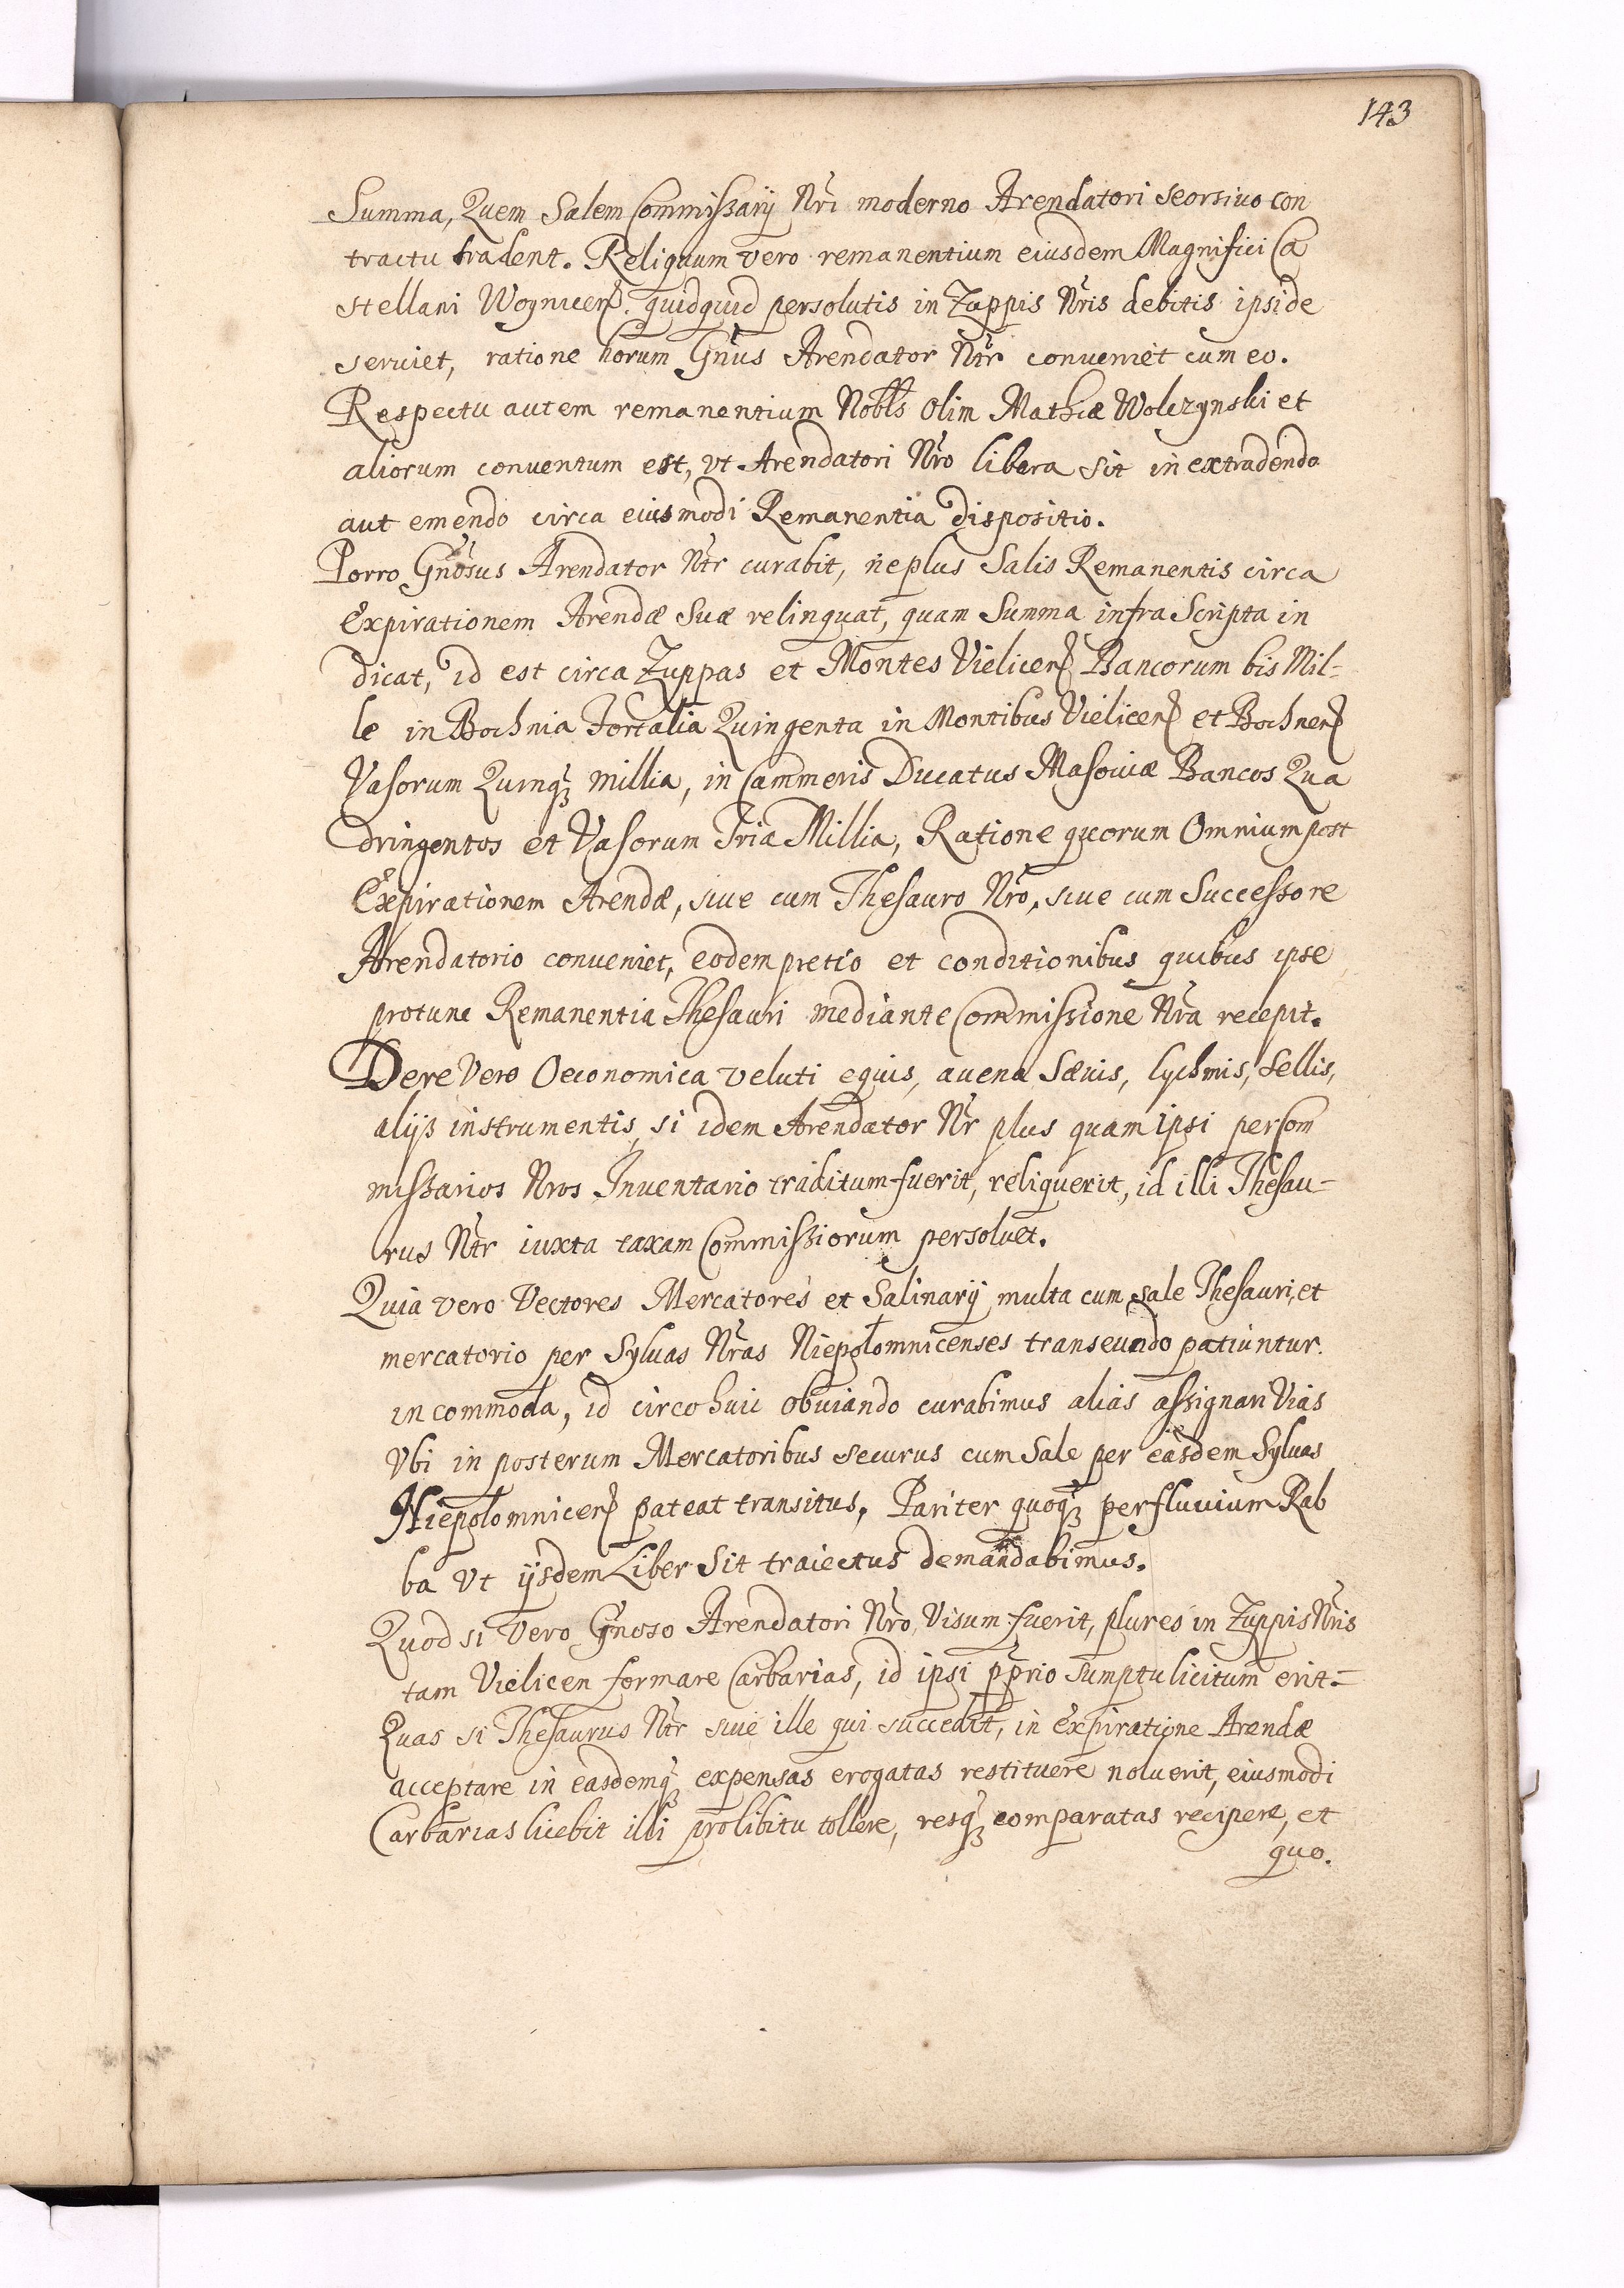 143
Summa, Quem Salem Commissarij Nri moderno Arendatori seorsivo con
tractu tradent. Reliquum vero remanentium eiusdem Magnifici Ca
stellani Woynicen. quidquid persolutis in Zuppis Nris debitis ipsi de
serviet, ratione horum Gnsus Arendator Ntr conveniet cum eo.
Respectu autem remanentium Nobls olim Mathiæ Wolczynski et
aliorum conventum est, vt Arendatori Nro libera sit in extradendo
aut emendo circa eiusmodi Remanentia dispositio.
Porro Gnosus Arendator Ntr curabit, ne plus Salis Remanentis circa
Expirationem Arendæ Suæ relinquat, quam Summa infra Scripta in
dicat, id est circa Zuppas et Montes Vielicen Bancorum bis Mil-
le in Bochnia Fortalia Quingenta in Montibus Vielicen et Bochnen
Vasorum Quinq3 millia, in Cammeris Ducatus Masoviæ Bancos Qua
dringentos et Vasorum Tria Millia, Ratione quorum Omnium post
Expirationem Arendæ, siue cum Thesauro Nro, siue cum Successore
Arendatorio conveniet, eodem pretio et conditionibus quibus ipse
protunc Remanentia Thesauri mediante Commissione Nra recepit.
De re Vero Oeconomica veluti equis, avena Sævis, lychmis, Sellis,
alijs instrumentis, si idem Arendator Nr plus quam ipsi per Com
missarios Nros Inventario traditum fuerit, reliquerit, id illi Thesau-
rus Ntr iuxta taxam Commissiorum persolvet.
Quia vero Vectores Mercatores et Salinarij multa cum sale Thesauri, et
mercatorio per Sylvas Nras Niepołomnicenses transeundo patiuntur
incommoda, id circo huic obviando curabimus alias assignari Vias
Vbi in posterum Mercatoribus securus cum Sale per easdem Sylvas
Niepołomnicen pateat transitus, Pariter quoq3 per fluvium Rab
ba Vt ijsdem Liber Sit traiectus demandabimus.
Quod si Vero Gnoso Arendatori Nro, Visum fuerit, plures in Zuppis Nris
tam Vielicen formare Carbarias, id ipsi pprio sumptu licitum erit.=
Quas si Thesaurus Ntr siue ille qui succedit, in Expiratione Arendæ
acceptare in easdemq3 expensas erogatas restituere noluerit, eiusmodi
Carbarias licebit illi prolibitu tollere, resq3 comparatas recipere, et
quo.